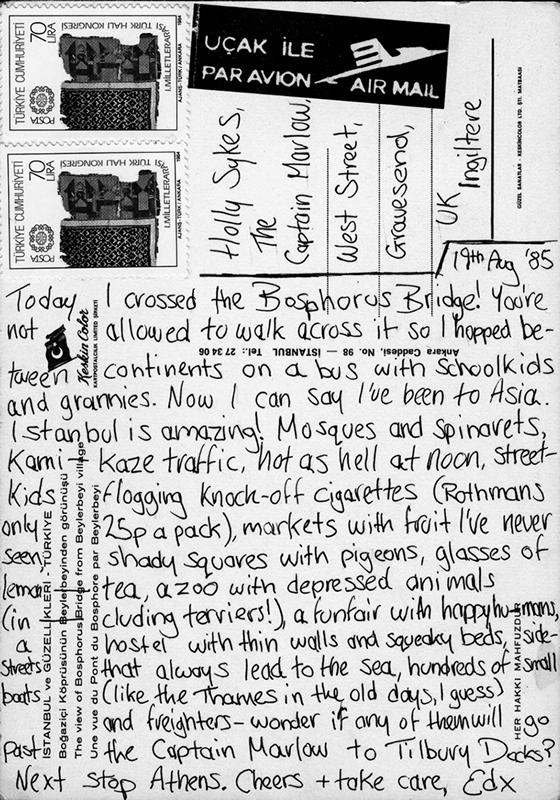 TÜRKİYE CUMHURİYETİ
70 LİRA
POSTA
I.MİLLETLERARASI
TÜRK HALI KONGRESİ
AJANS-TÜRK/ANKARA
1984
TÜRKİYE CUMHURİYETİ
70 LİRA
POSTA
I.MİLLETLERARASI
TÜRK HALI KONGRESİ
AJANS-TÜRK/ANKARA
1984
UÇAK İLE
PAR AVION AIR MAIL
Holly Sykes,
The
Captain Marlow,
West Street,
Gravesend,
UK
Ingiltere
GÜZEL SANATLAR - KESKİNCOLOR LTD. ŞTİ. MATBAASI
19th Aug '85
Today I crossed the Bosphorus Bridge! You're
not allowed to walk across it so I hopped be-
tween continents on a bus with schoolkids
and grannies. Now I can say I've been to Asia.
Istanbul is amazing! Mosques and spinarets,
Kami-Kaze traffic, hot as hell at noon, street-
Kids flogging knock-off cigarettes (Rothmans
only 25p a pack), markets with fruit I've never
seen, shady squares with pigeons, glasses of
lemon tea, a zoo with depressed animals
(in cluding terriers!), a funfair with happy humans,
a hostel with thin walls and squeaky beds, side-
streets that always lead to the sea, hundreds of small
boats (like the Thames in the old days, I guess)
and freighters - wonder if any of them will go
past the Captain Marlow to Tilbury Docks?
Next stop Athens. Cheers + take care, Edx
Keskin Color
KARTPOSTALCILIK LIMITED ŞİRKETİ
Ankara Caddesi, No. 98 — İSTANBUL Tel.: 27 34 06
İSTANBUL ve GÜZELLİKLERİ - TÜRKİYE
Boğaziçi Köprüsünün Beylerbeyinden görünüşü
The view of Bosphorus Bridge from Beylerbeyi village
Une vue du Pont du Bosphore par Beylerbeyi
HER HAKKI MAHFUZDUR